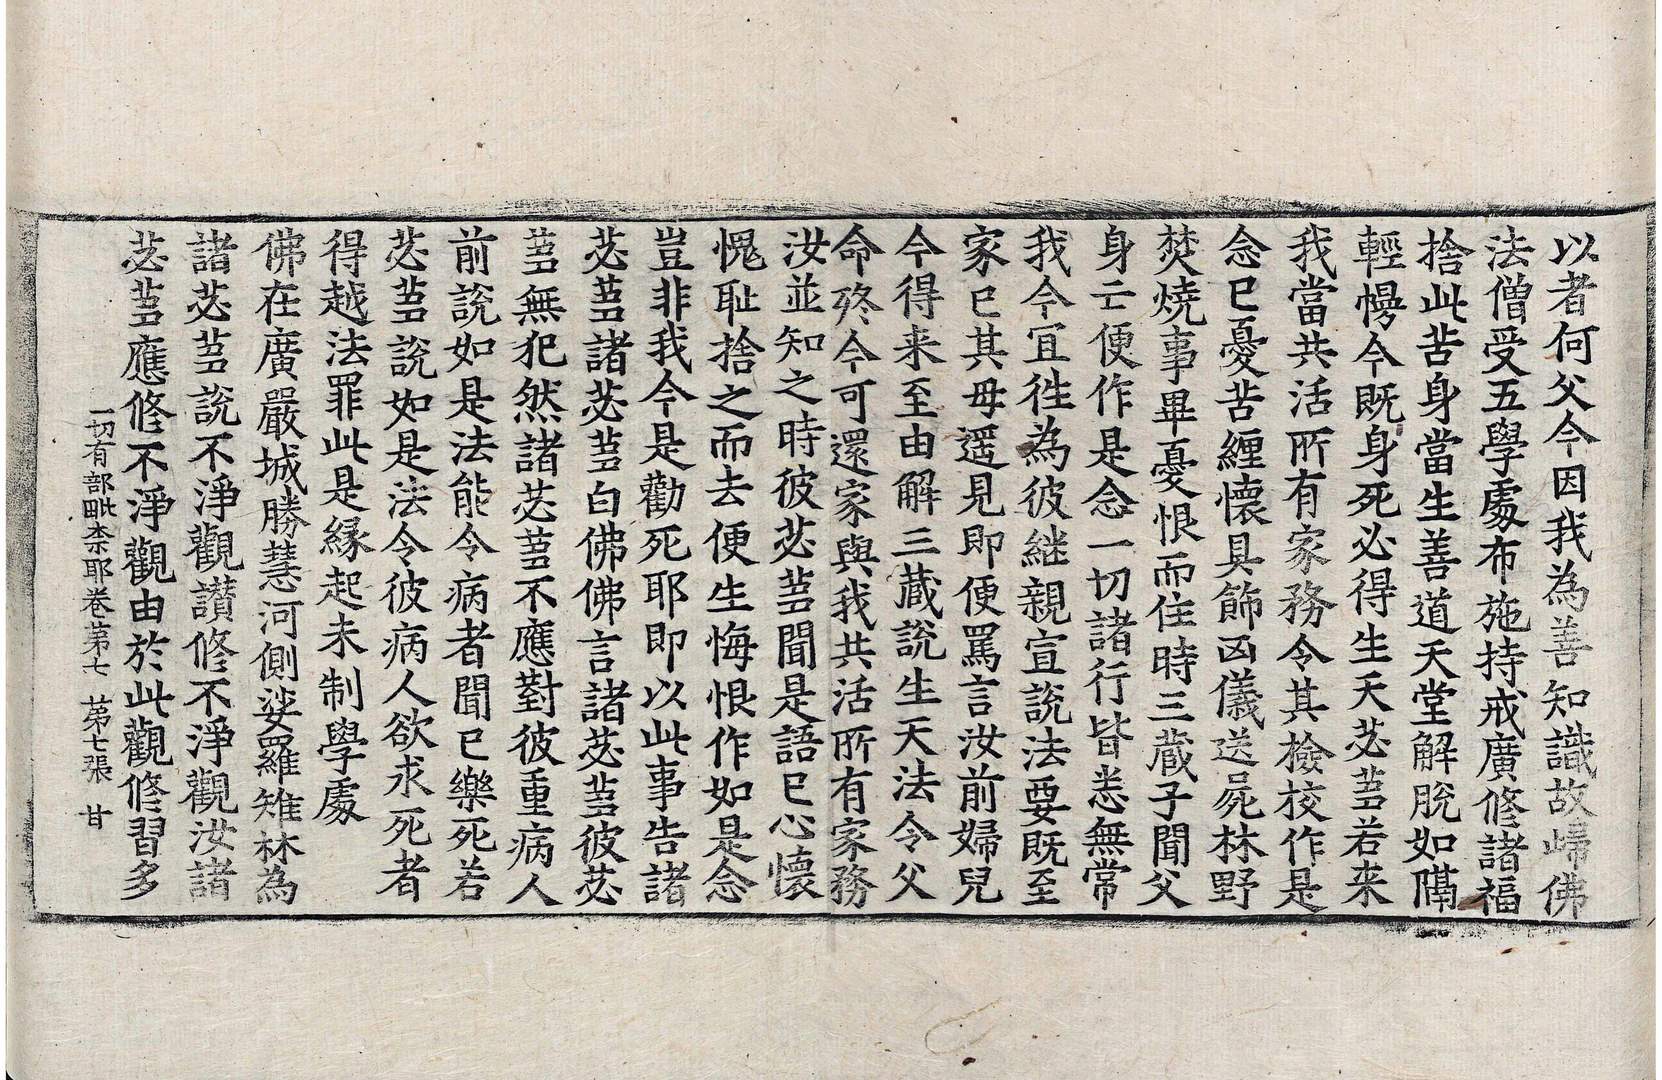 以者何父今因我為善知識故歸佛
法僧受五學處布施持戒廣修諸福
捨此苦身當生善道天堂解脫如隔
輕幔今既身死必得生天苾芻若来
我當共活所有家務令其檢校作是
念已憂苦纏懷具飾凶儀送屍林野
焚燒事畢憂恨而住時三藏子聞父
身亡便作是念一切諸行皆悉無常
我今宜徃為彼継親宣說法要既至
家已其母遥見即便罵言汝前婦兒
今得来至由解三藏說生天法令父
命終今可還家與我共活所有家務
汝並知之時彼苾芻聞是語已心懷
愧耻捨之而去便生悔恨作如是念
豈非我今是勸死耶即以此事告諸
苾芻諸苾芻白佛佛言諸苾芻彼苾
芻無犯然諸苾芻不應對彼重病人
前說如是法能令病者聞已樂死若
苾芻說如是法令彼病人欲求死者
得越法罪此是緣起未制學處
佛在廣嚴城勝慧河側娑羅雉林為
諸苾芻說不淨觀讃修不淨觀汝諸
苾芻應修不淨觀由於此觀修習多
一切有部毗柰耶卷第七 第七張 甘